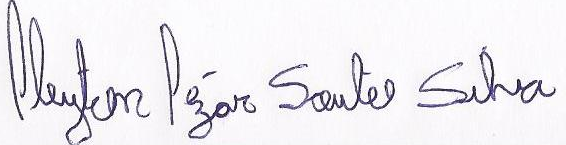 Cleyton Cézar Santos Silva